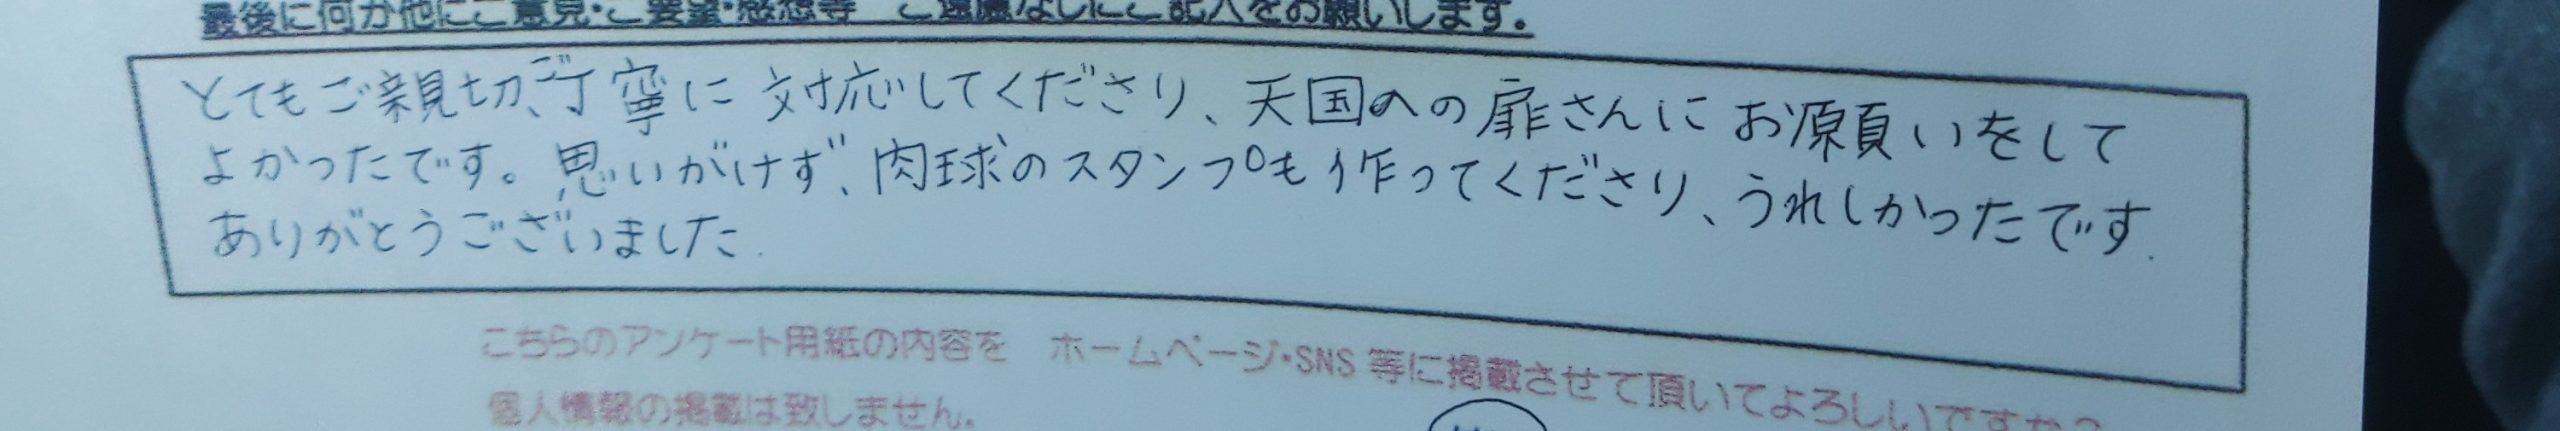 最後に何か他にご意見・ご要望・感想等　ご遠慮なしにご記入をお願いします。
とてもご親切、ご丁寧に対応してくださり、天国への扉さんにお願いをして
よかったです。思いがけず、肉球のスタンプも作ってくださり、うれしかったです.
ありがとうございました.
こちらのアンケート用紙の内容を　ホームページ・SNS等に掲載させて頂いてよろしいですか？
個人情報の掲載は致しません。